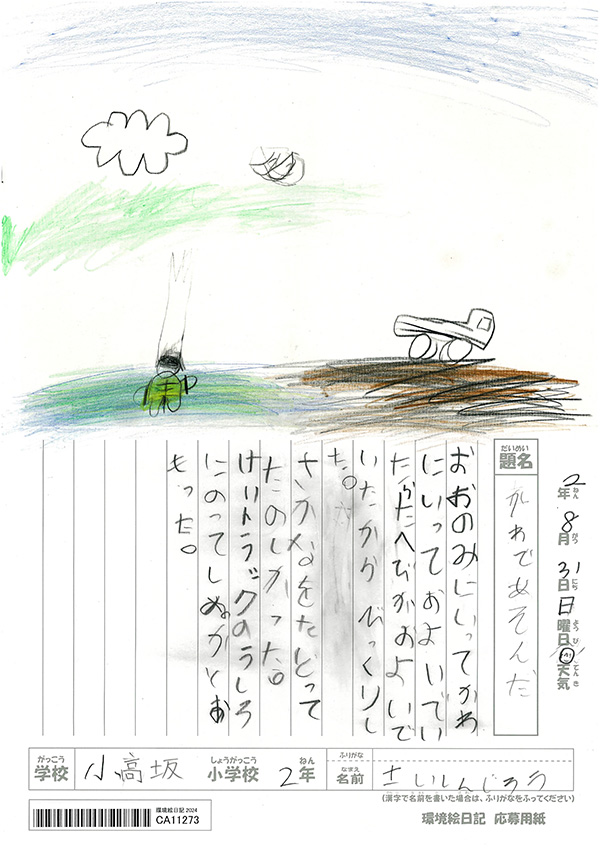 2年8月31日日曜日天気
ねん がつ にち ようび てんき
だいめい
題名
かわであそんだ
おおのみにいってかわ
にいっておよいでい
たらたへびがおよいで
いたから びっくりし
た。
さかなをたどって
たのしかった。
けいトラックのうしろ
にのってしぬかとお
もった。
がっこう しょうがっこう ねん ふりがな
学校 小高坂 小学校 2年 なまえ 名前 土いしんじろう
(漢字で名前を書いた場合は、ふりがなをふってください)
環境絵日記 2024
CA11273
環境絵日記 応募用紙